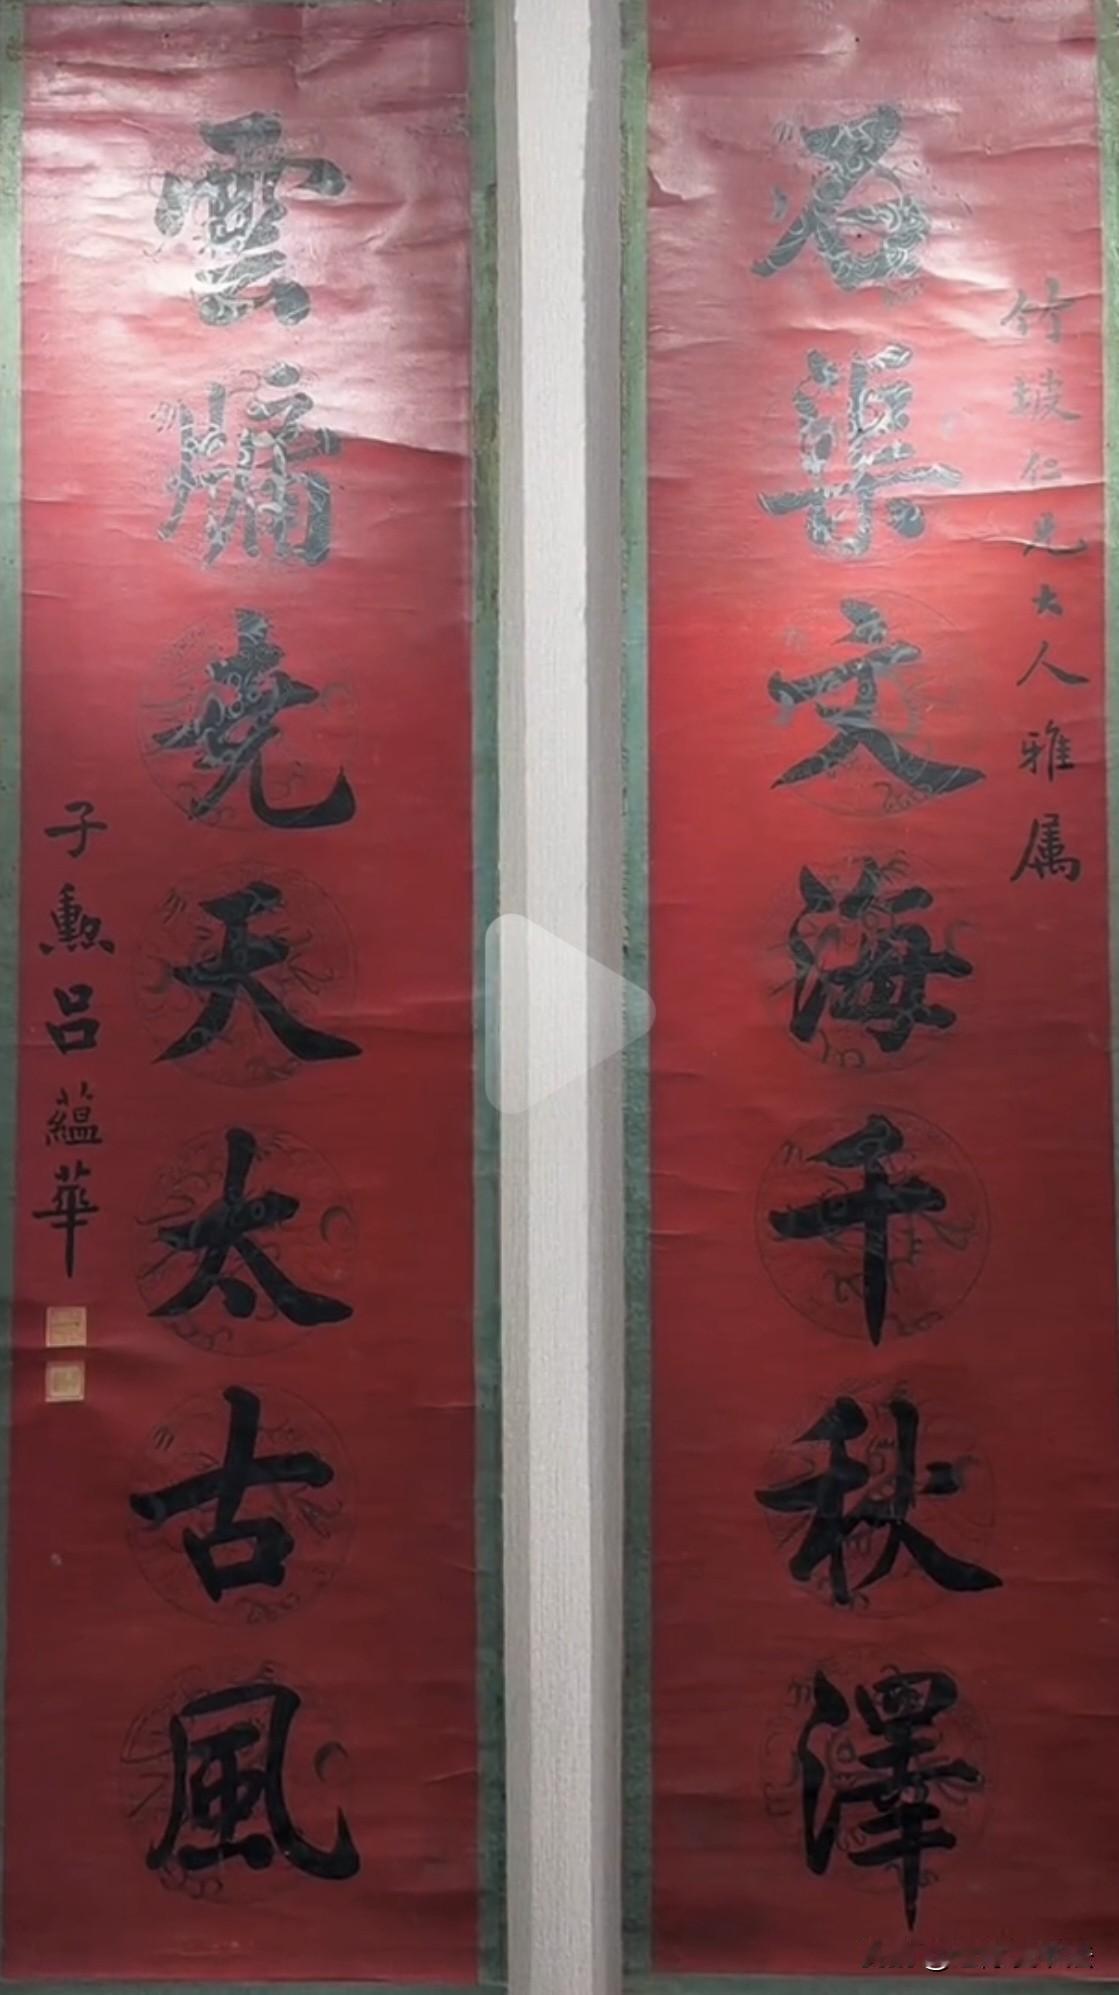 竹坡仁兄大人雅属
石渠文海千秋澤
雲牖堯天太古風
子勲呂蕴華